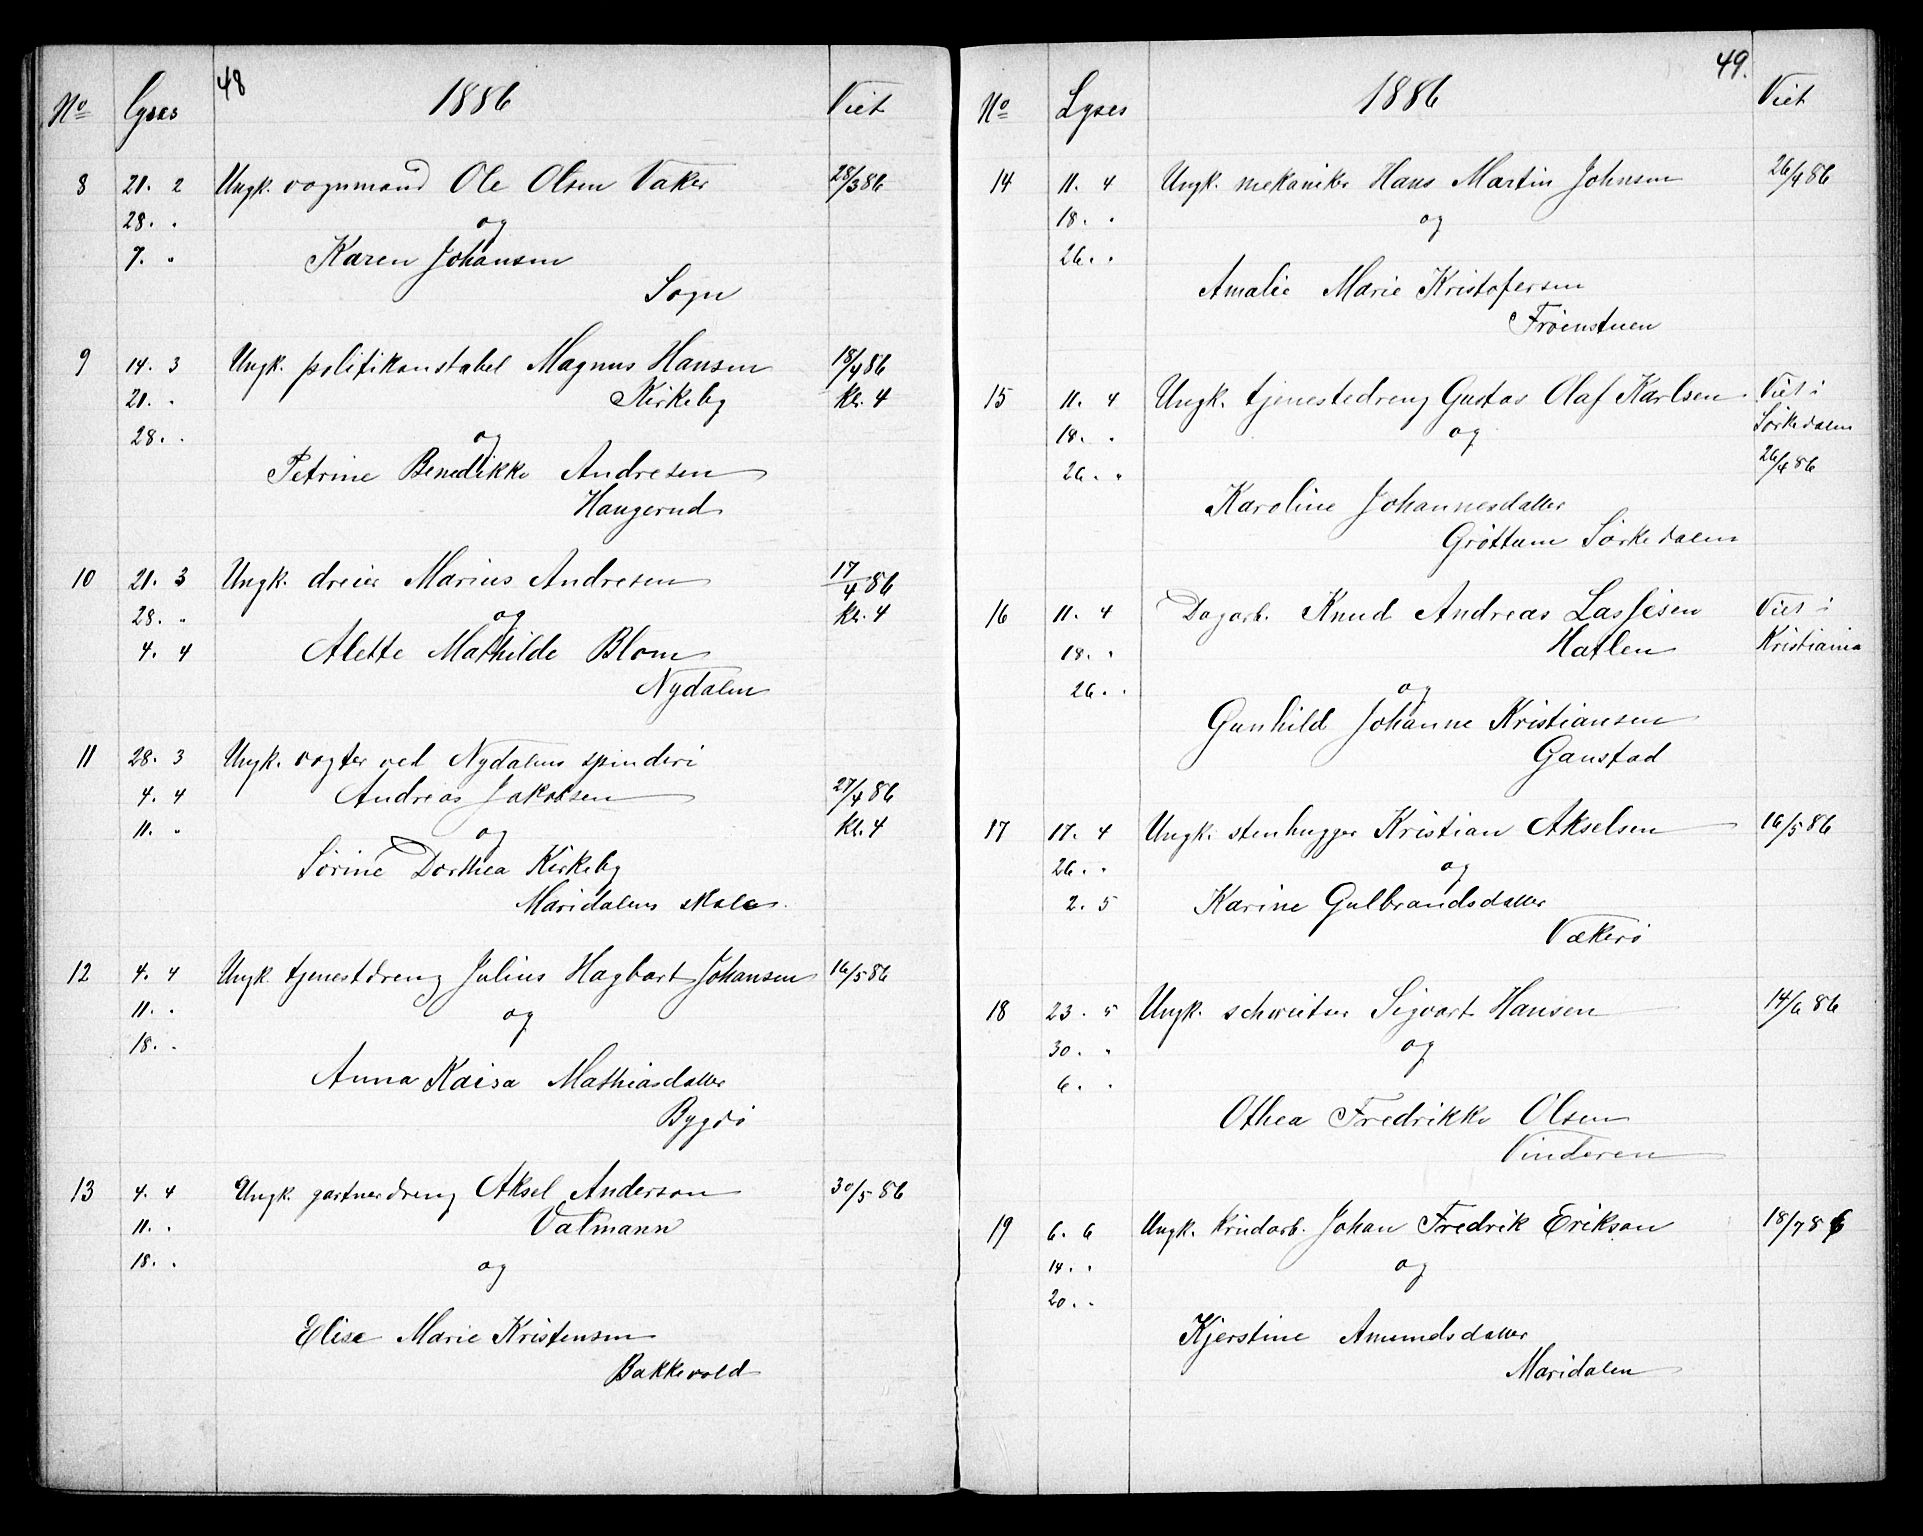 48
No Lyses 1886 Viet
8 21. 2 Ungk. vognmand Ole Olsen Vaker 28/3 86
28. " og
7. " Karen Johansen
Sogn
9 14. 3 Ungk. politikonstabel Magnus Hansen 18/4 86
21. " Kirkeby Kl. 4
28. " og
Petrine Benedikke Andresen
Haugerud
10 21. 3 Ungk. dreier Marius Andresen 17/4 86
28. " og Kl. 4
4. 4 Alette Mathilde Blom
Nydalen
11 28. 3 Ungk. vogter ved Nydalens spinderi
4. 4 Andreas Jakobsen 27/4 86
11. " og Kl. 4
Sörine Dorthea Kirkeby
Maridalens skole
12 4. 4 Ungk. tjenestdreng Julius Hagbart Johansen 16/5 86
11. " og
18. "
Anna Kaisa Mathiasdatter
Bygdö
13 4. 4 Ungk. gartnerdreng Aksel Anderson 30/5 86
11. " Valmann
18. " og
Elise Marie Kristensen
Bakkevold
49.
No Lyses 1886 Viet
14 11. 4 Ungk. mekaniker Hans Martin Johnsen 26/4 86
18. " og
26. "
Amalie Marie Kristofersen
Fröenstuen
15 11. 4 Ungk. tjenestedreng Gustav Olaf Karlsen Viet i
18. " og Sörkedalen
26. " 26/4 86
Karoline Johannesdatter
Gröttum Sörkedalen
16 11. 4 Dagarb. Knud Andreas Lassesen Viet i
18. " Hatlen Kristiania
26. " og
Gunhild Johanne Kristiansen
Gaustad
17 17. 4 Ungk. stenhugger Kristian Akselsen 16/5 86
26. " og
2. 5 Karine Gulbrandsdatter
Vækerö
18 23. 5 Ungk. schweitser Sigvart Hansen 14/6 86
30. " og
6. "
Othea Fredrikke Olsen
Vinderen
19 6. 6 Ungk. Krudarb. Johan Fredrik Erikson 18/7 86
14. " og
20. "
Kjerstine Amundsdatter
Maridalen